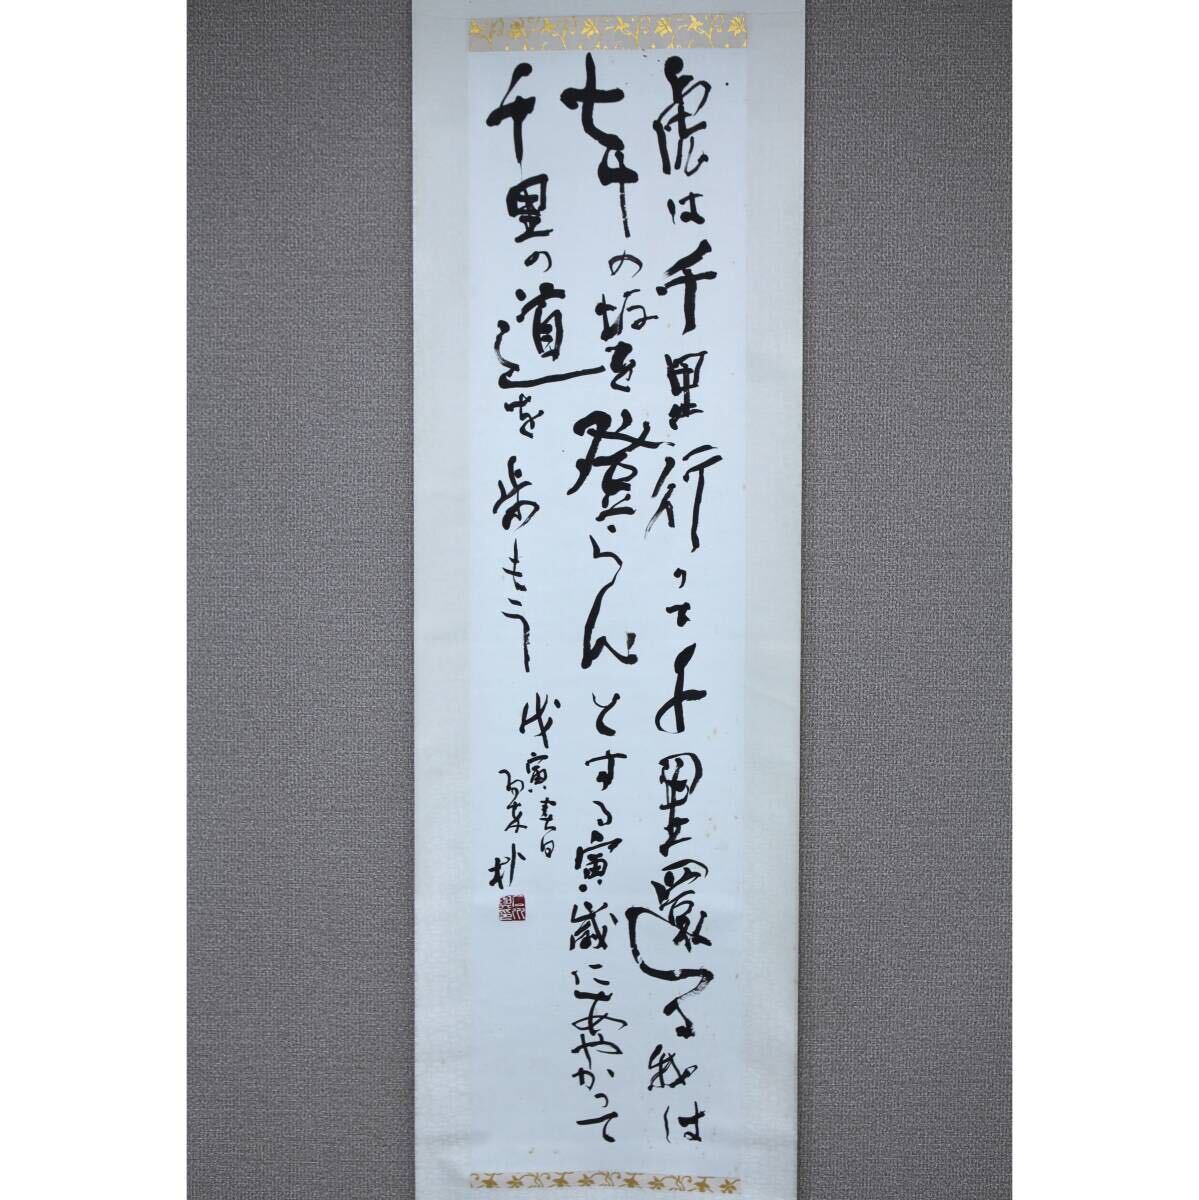 虎は千里行って千里還る我は
七十の坂を登らんとする寅歳にあやかって
千里の道を歩もう
戊寅春日
朴